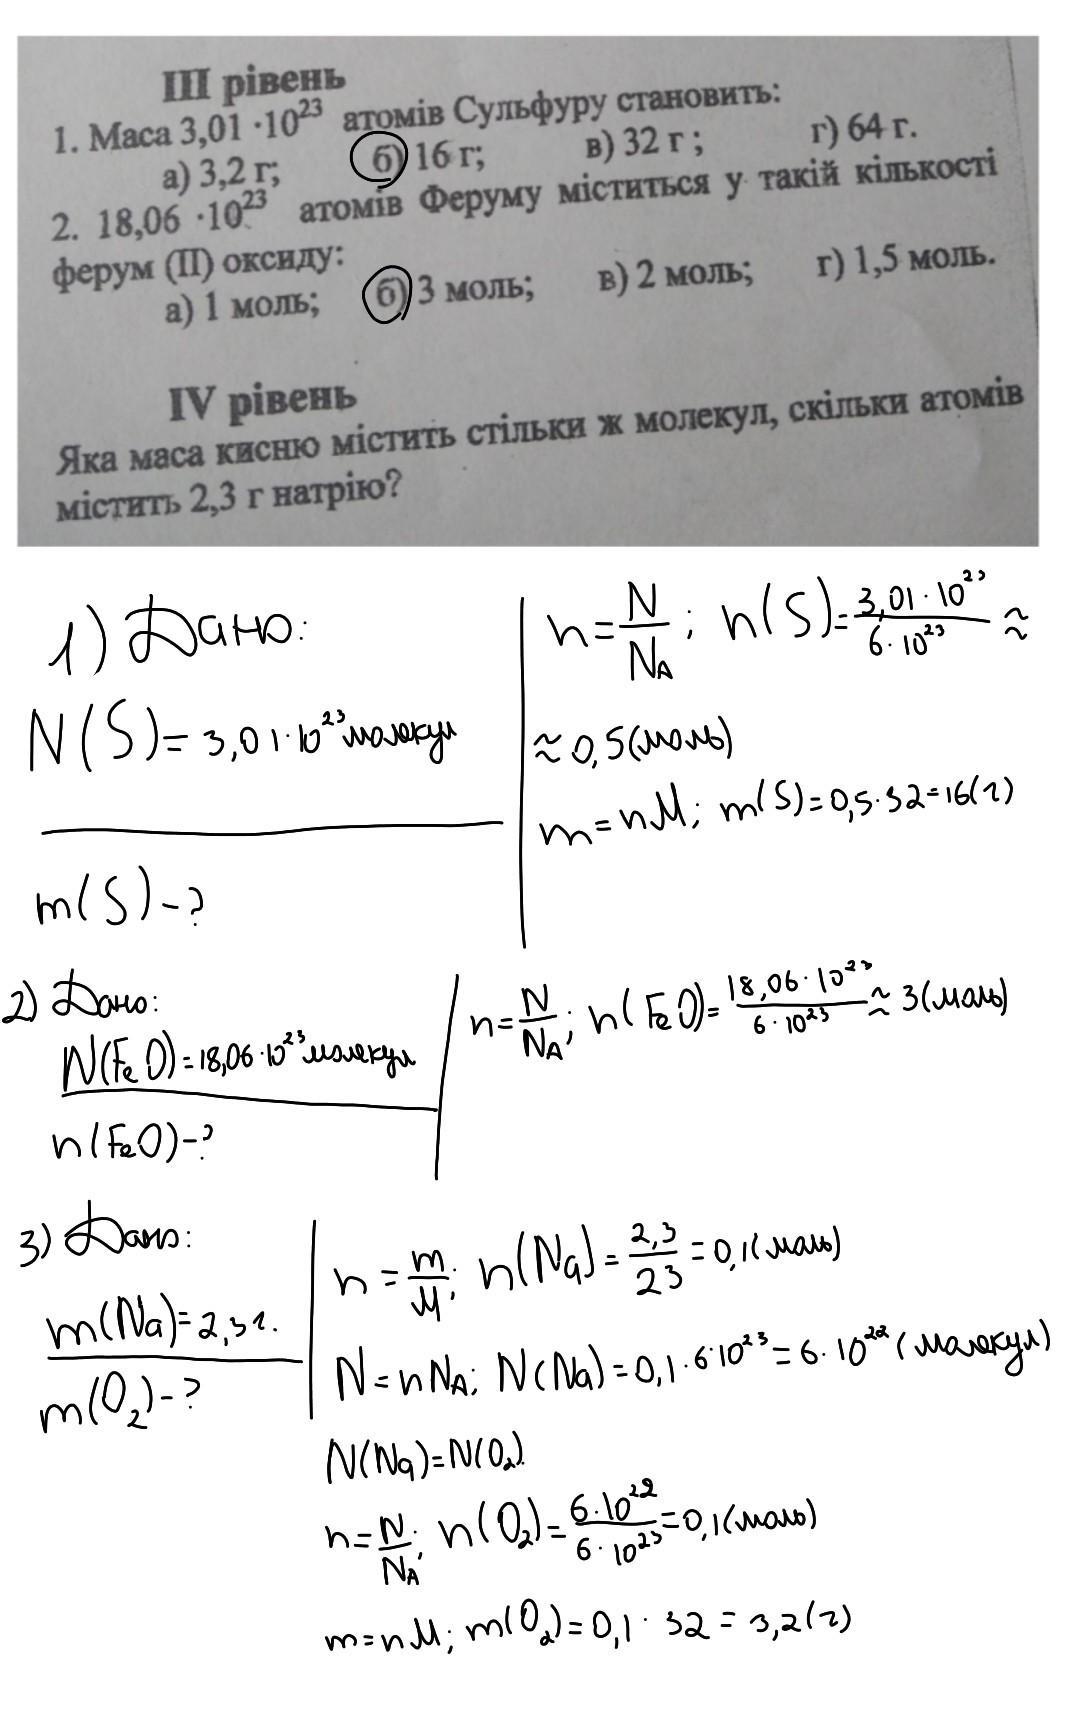 III рівень
1. Маса 3,01 ·10²³ атомів Сульфуру становить:
а) 3,2 г; б) 16 г; в) 32 г ; г) 64 г.
2. 18,06 ·10²³ атомів Феруму міститься у такій кількості
ферум (II) оксиду:
а) 1 моль; б) 3 моль; в) 2 моль; г) 1,5 моль.
IV рівень
Яка маса кисню містить стільки ж молекул, скільки атомів
містить 2,3 г натрію?
1) Дано:
N(S)=3,01·10²³ молекул
m(S)-?
n=N/Nᴀ; n(S)=3,01·10²³/6·10²³ ≈
≈ 0,5(моль)
m=nM; m(S)=0,5·32=16(г)
2) Дано:
N(FeO)=18,06·10²³ молекул
n(FeO)-?
n=N/Nᴀ; n(FeO)=18,06·10²³/6·10²³ ≈ 3(моль)
3) Дано:
m(Na)=2,3г.
m(O₂)-?
n=m/M; n(Na)=2,3/23=0,1(моль)
N=nNᴀ; N(Na)=0,1·6·10²³=6·10²² (молекул)
N(Na)=N(O₂)
n=N/Nᴀ; n(O₂)=6·10²²/6·10²³=0,1(моль)
m=nM; m(O₂)=0,1·32=3,2(г)